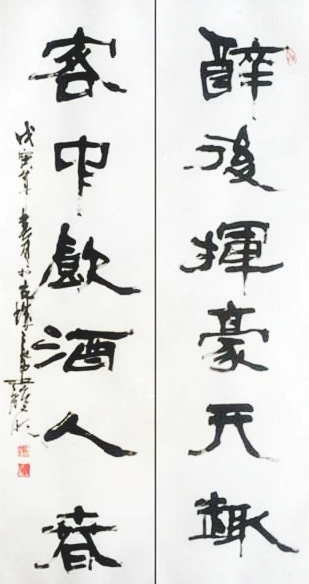 醉後揮豪天趣
客中飲酒人春
戊寅年